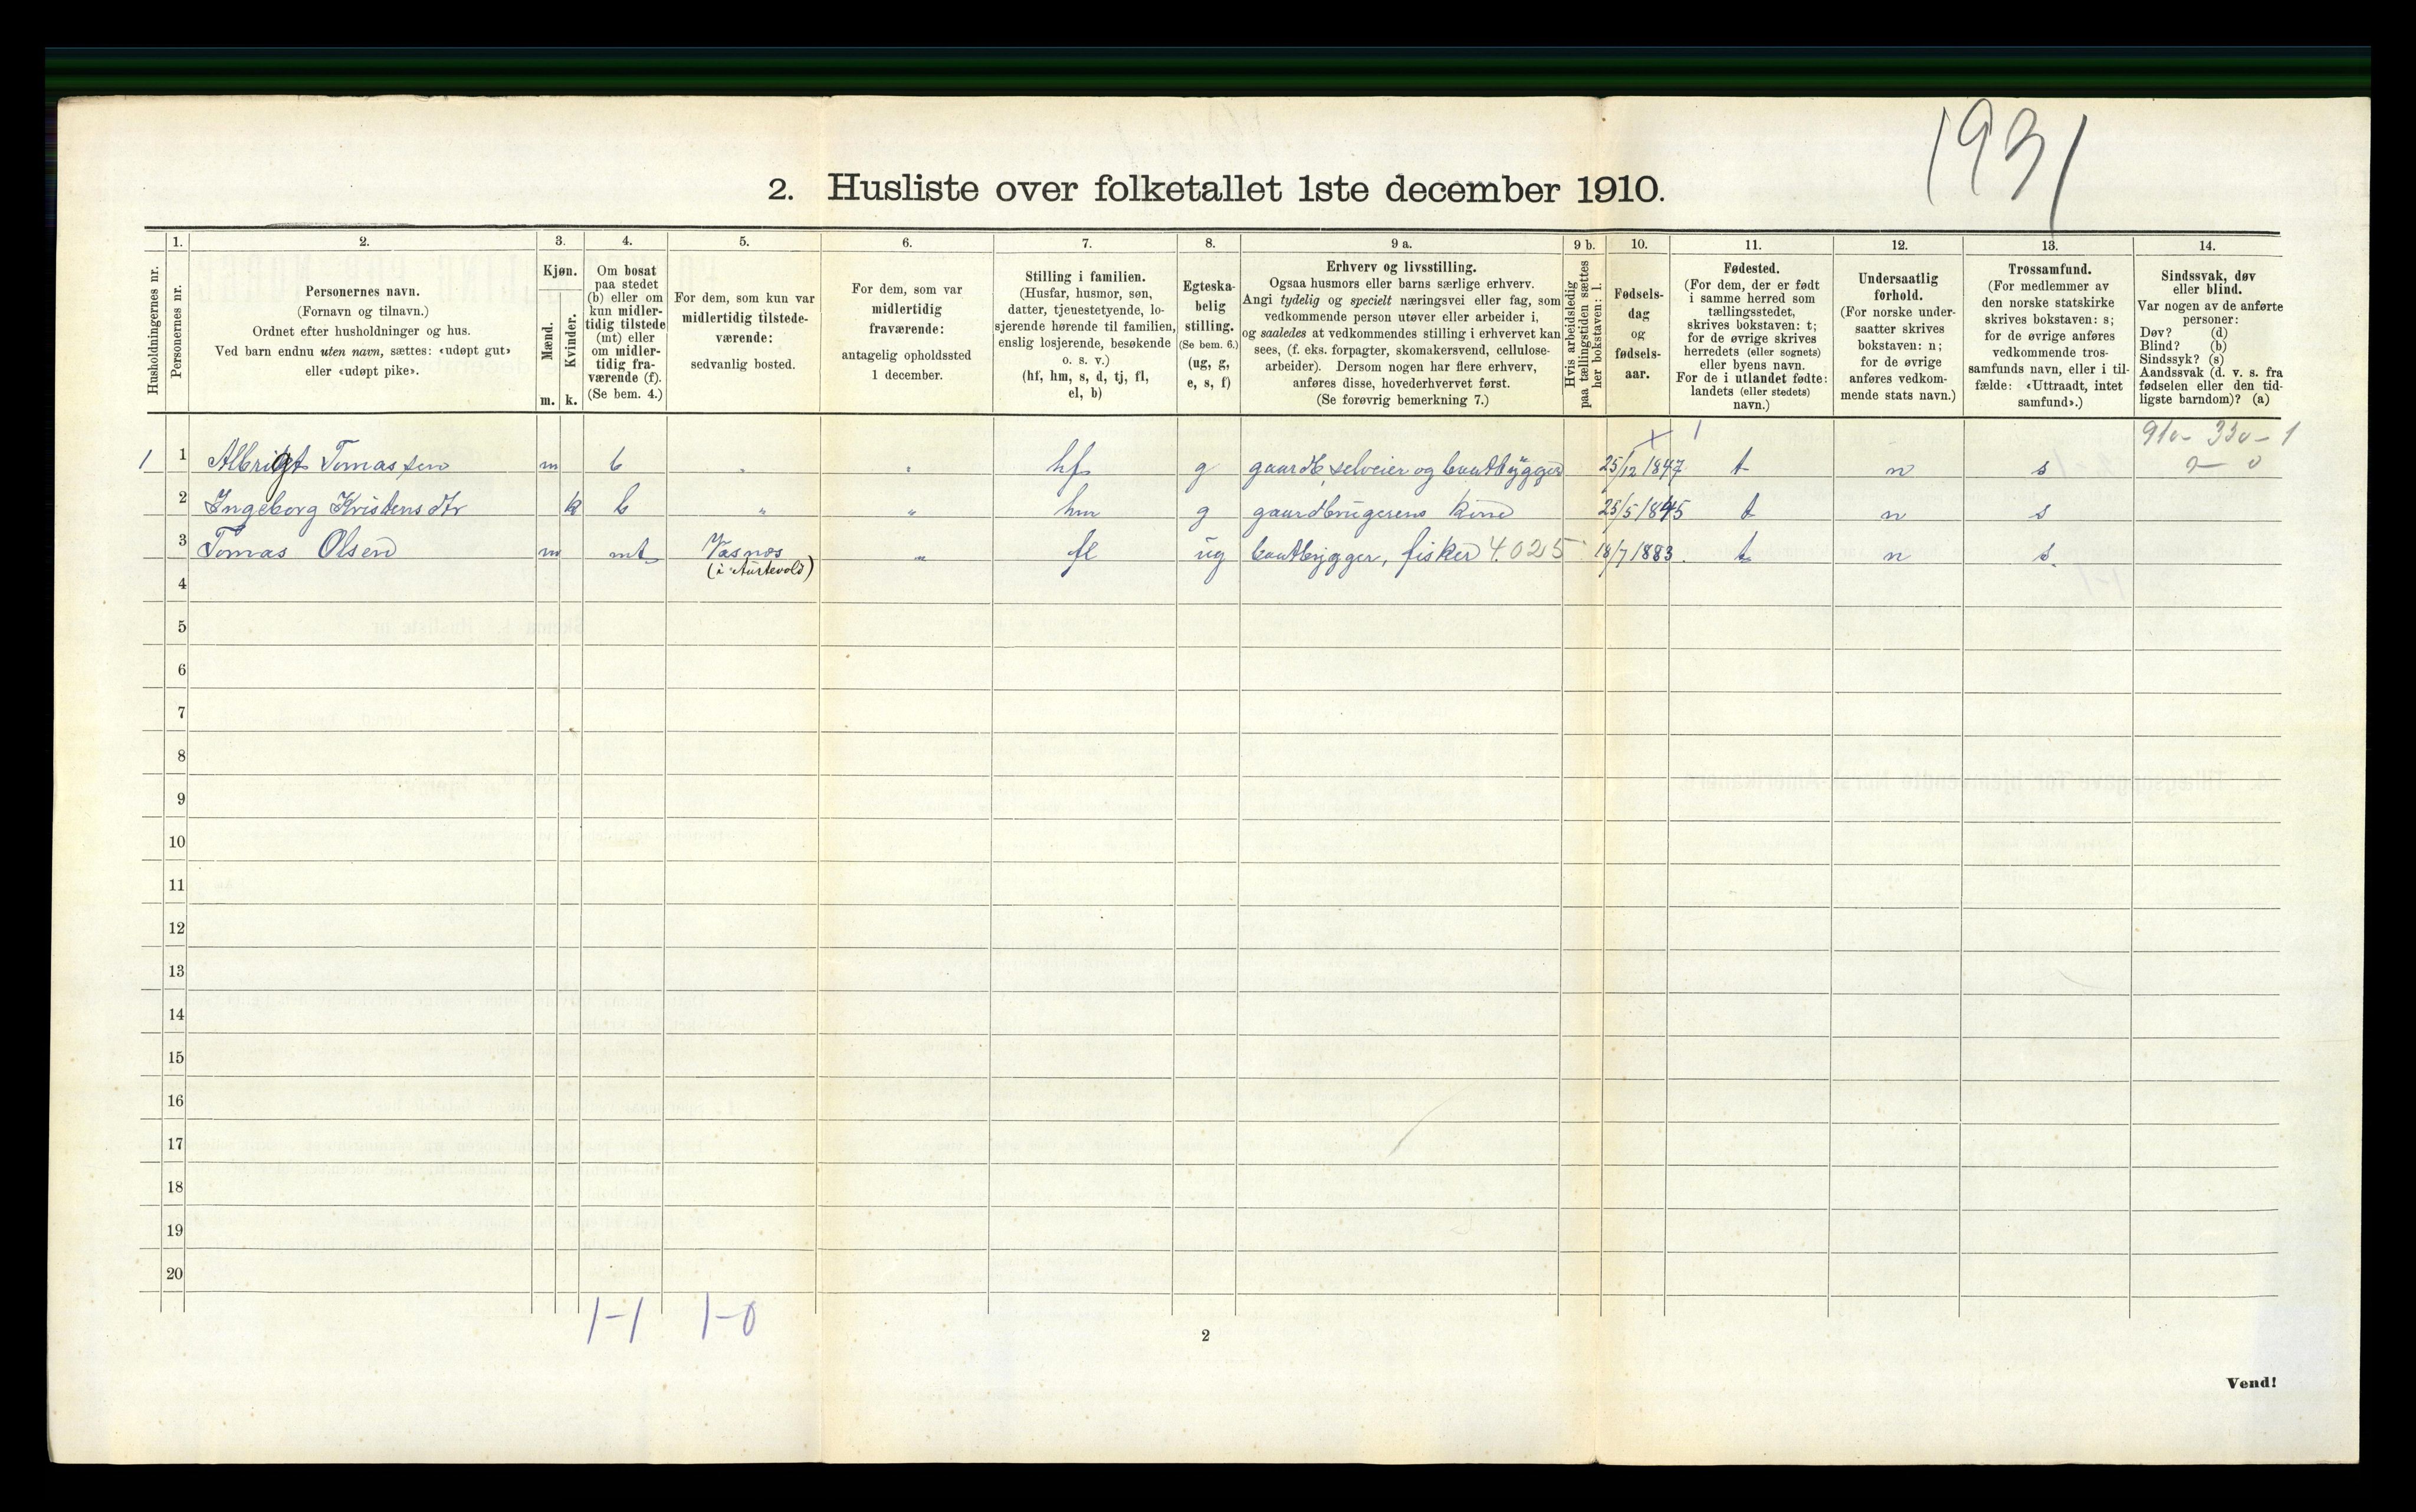 1931
2. Husliste over folketallet 1ste december 1910.
Husholdningernes nr.
1.
Personernes nr.
2.
Personernes navn.
(Fornavn og tilnavn.)
Ordnet efter husholdninger og hus.
Ved barn endnu uten navn, sættes: «udøpt gut»
eller «udøpt pike».
3.
Kjøn.
Mænd.
Kvinder.
m. k.
4.
Om bosat
paa stedet
(b) eller om
kun midler-
tidig tilstede
(mt) eller
om midler-
tidig fra-
værende (f).
(Se bem. 4.)
5.
For dem, som kun var
midlertidig tilstede-
værende:
sedvanlig bosted.
6.
For dem, som var
midlertidig
fraværende:
antagelig opholdssted
1 december.
7.
Stilling i familien.
(Husfar, husmor, søn,
datter, tjenestetyende, lo-
sjerende hørende til familien,
enslig losjerende, besøkende
o. s. v.)
(hf, hm, s, d, tj, fl,
el, b)
8.
Egteska-
belig
stilling.
(Se bem. 6.)
(ug, g,
e, s, f)
9 a.
Erhverv og livsstilling.
Ogsaa husmors eller barns særlige erhverv.
Angi tydelig og specielt næringsvei eller fag, som
vedkommende person utøver eller arbeider i,
og saaledes at vedkommendes stilling i erhvervet kan
sees, (f. eks. forpagter, skomakersvend, cellulose-
arbeider). Dersom nogen har flere erhverv,
anføres disse, hovederhvervet først.
(Se forøvrig bemerkning 7.)
9 b.
Hvis arbeidsledig
paa tællingstiden sættes
her bokstaven: l.
10.
Fødsels-
dag
og
fødsels-
aar.
11.
Fødested.
(For dem, der er født
i samme herred som
tællingsstedet,
skrives bokstaven: t;
for de øvrige skrives
herredets (eller sognets)
eller byens navn.
For de i utlandet fødte:
landets (eller stedets)
navn.)
12.
Undersaatlig
forhold.
(For norske under-
saatter skrives
bokstaven: n;
for de øvrige
anføres vedkom-
mende stats navn.)
13.
Trossamfund.
(For medlemmer av
den norske statskirke
skrives bokstaven: s;
for de øvrige anføres
vedkommende tros-
samfunds navn, eller i til-
fælde: «Uttraadt, intet
samfund».)
14.
Sindssvak, døv
eller blind.
Var nogen av de anførte
personer:
Døv? (d)
Blind? (b)
Sindssyk? (s)
Aandssvak (d. v. s. fra
fødselen eller den tid-
ligste barndom)? (a)
1 1 Albrigt Tomassen m b " " hf g gaardb, selveier og baatbygger 25/12 1847 t n s
2 Ingeborg Kristensdtr k b " " hm g gaardbrugerens kone 25/5 1845 t n s
3 Tomas Olsen m mt Vasnos " fl ug baatbygger, fisker 4025 18/7 1883. t n s.
4
5
6
7
8
9
10
11
12
13
14
15
16
17
18
19
20
1-1 1-0
2
Vend!